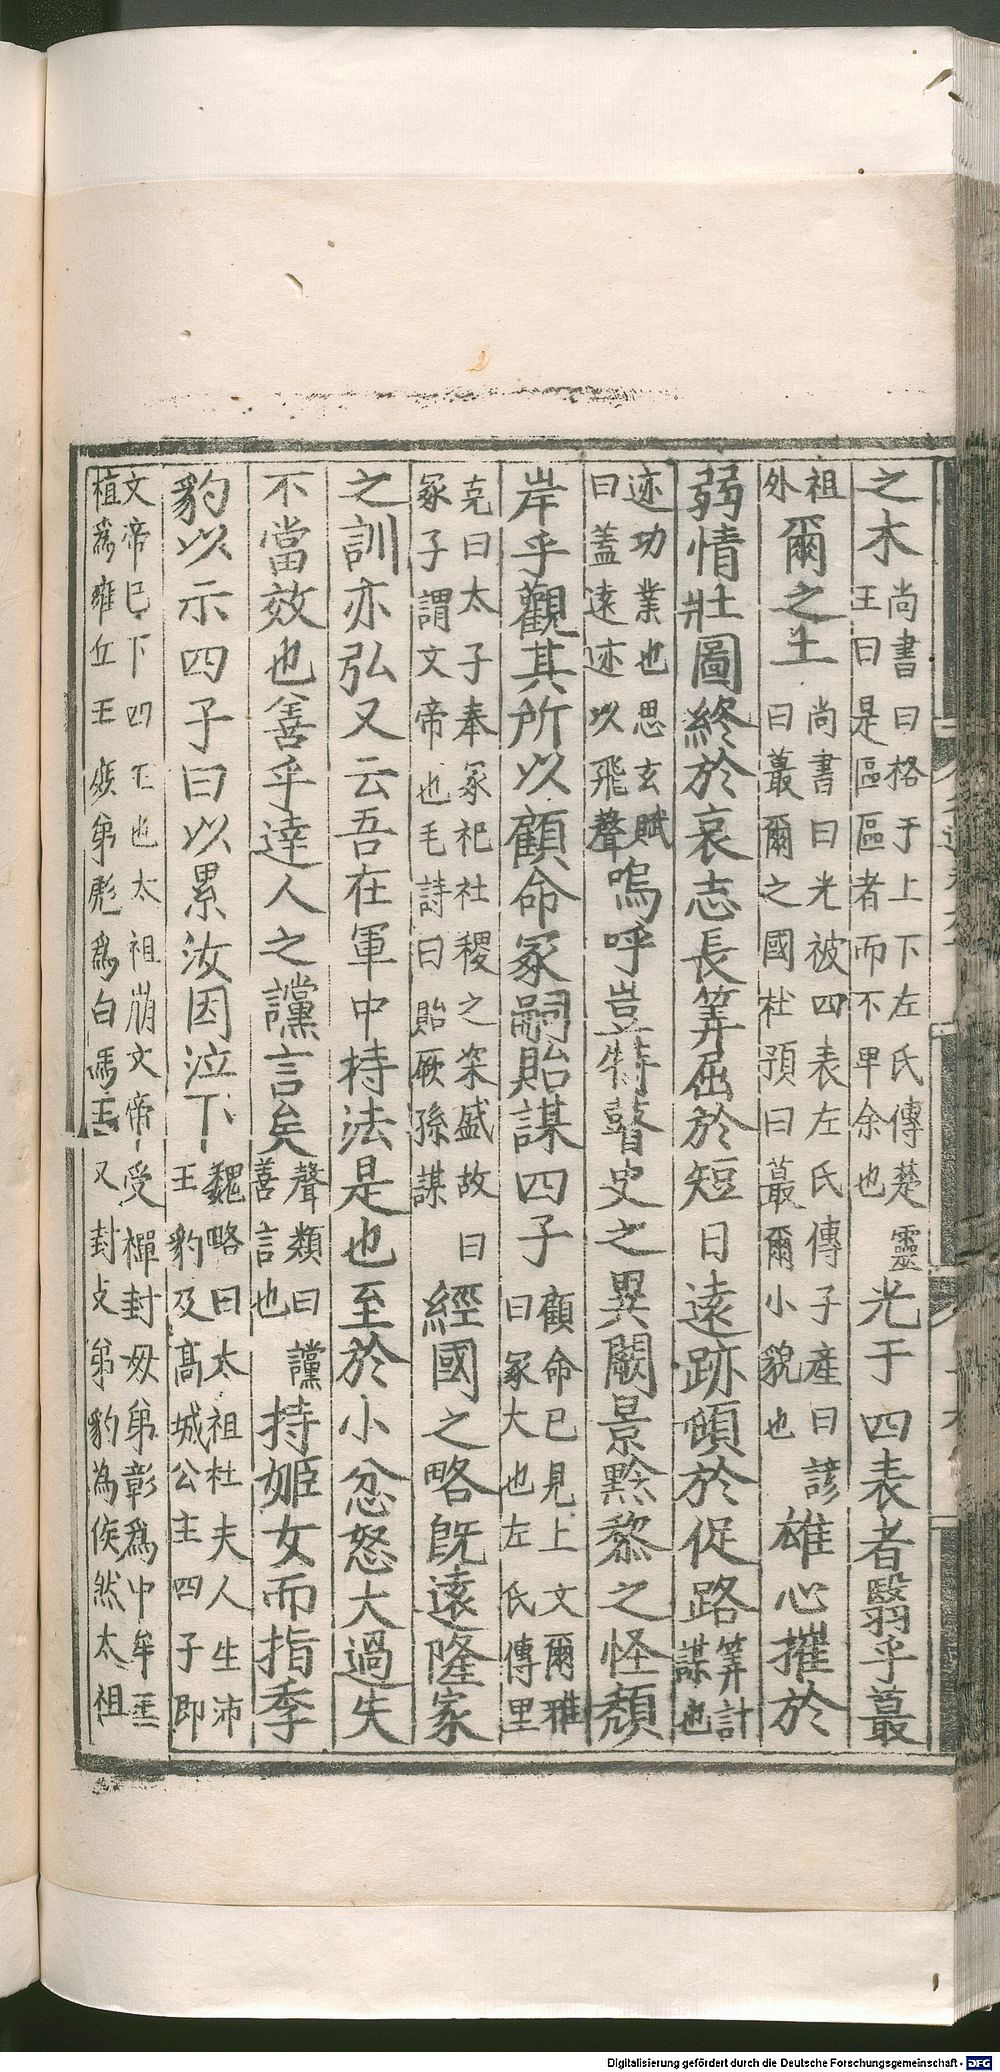 之木尚書曰格于上下左氏傳楚靈王曰是區區者而不畀余也光于四表者翳乎蕞
祖外爾之土尚書曰光被四表左氏傳子產曰諺曰蕞爾之國杜預曰蕞爾小貌也雄心摧於
弱情壯圖終於哀志長筭屈於短日遠跡頓於促路筭計謀也
迹功業也思玄賦曰蓋遠迹以飛聲嗚呼豈特瞽史之異闕景黔黎之怪頹
岸乎觀其所以顧命冢嗣貽謀四子顧命已見上文爾雅曰冢大也左氏傳里
克曰太子奉冢祀社稷之粢盛故曰冢子謂文帝也毛詩曰貽厥孫謀經國之略旣遠隆家
之訓亦弘又云吾在軍中持法是也至於小忿怒大過失
不當效也善乎達人之讜言矣聲類曰讜善言也持姬女而指季
豹以示四子曰以累汝因泣下魏略曰太祖杜夫人生沛王豹及高城公主四子即
文帝已下四王也太祖崩文帝受禪封母弟彰爲中牟王植爲雍丘王庶弟彪爲白馬王又封支弟豹為侯然太祖
Digitalisierung gefördert durch die Deutsche Forschungsgemeinschaft - DFG